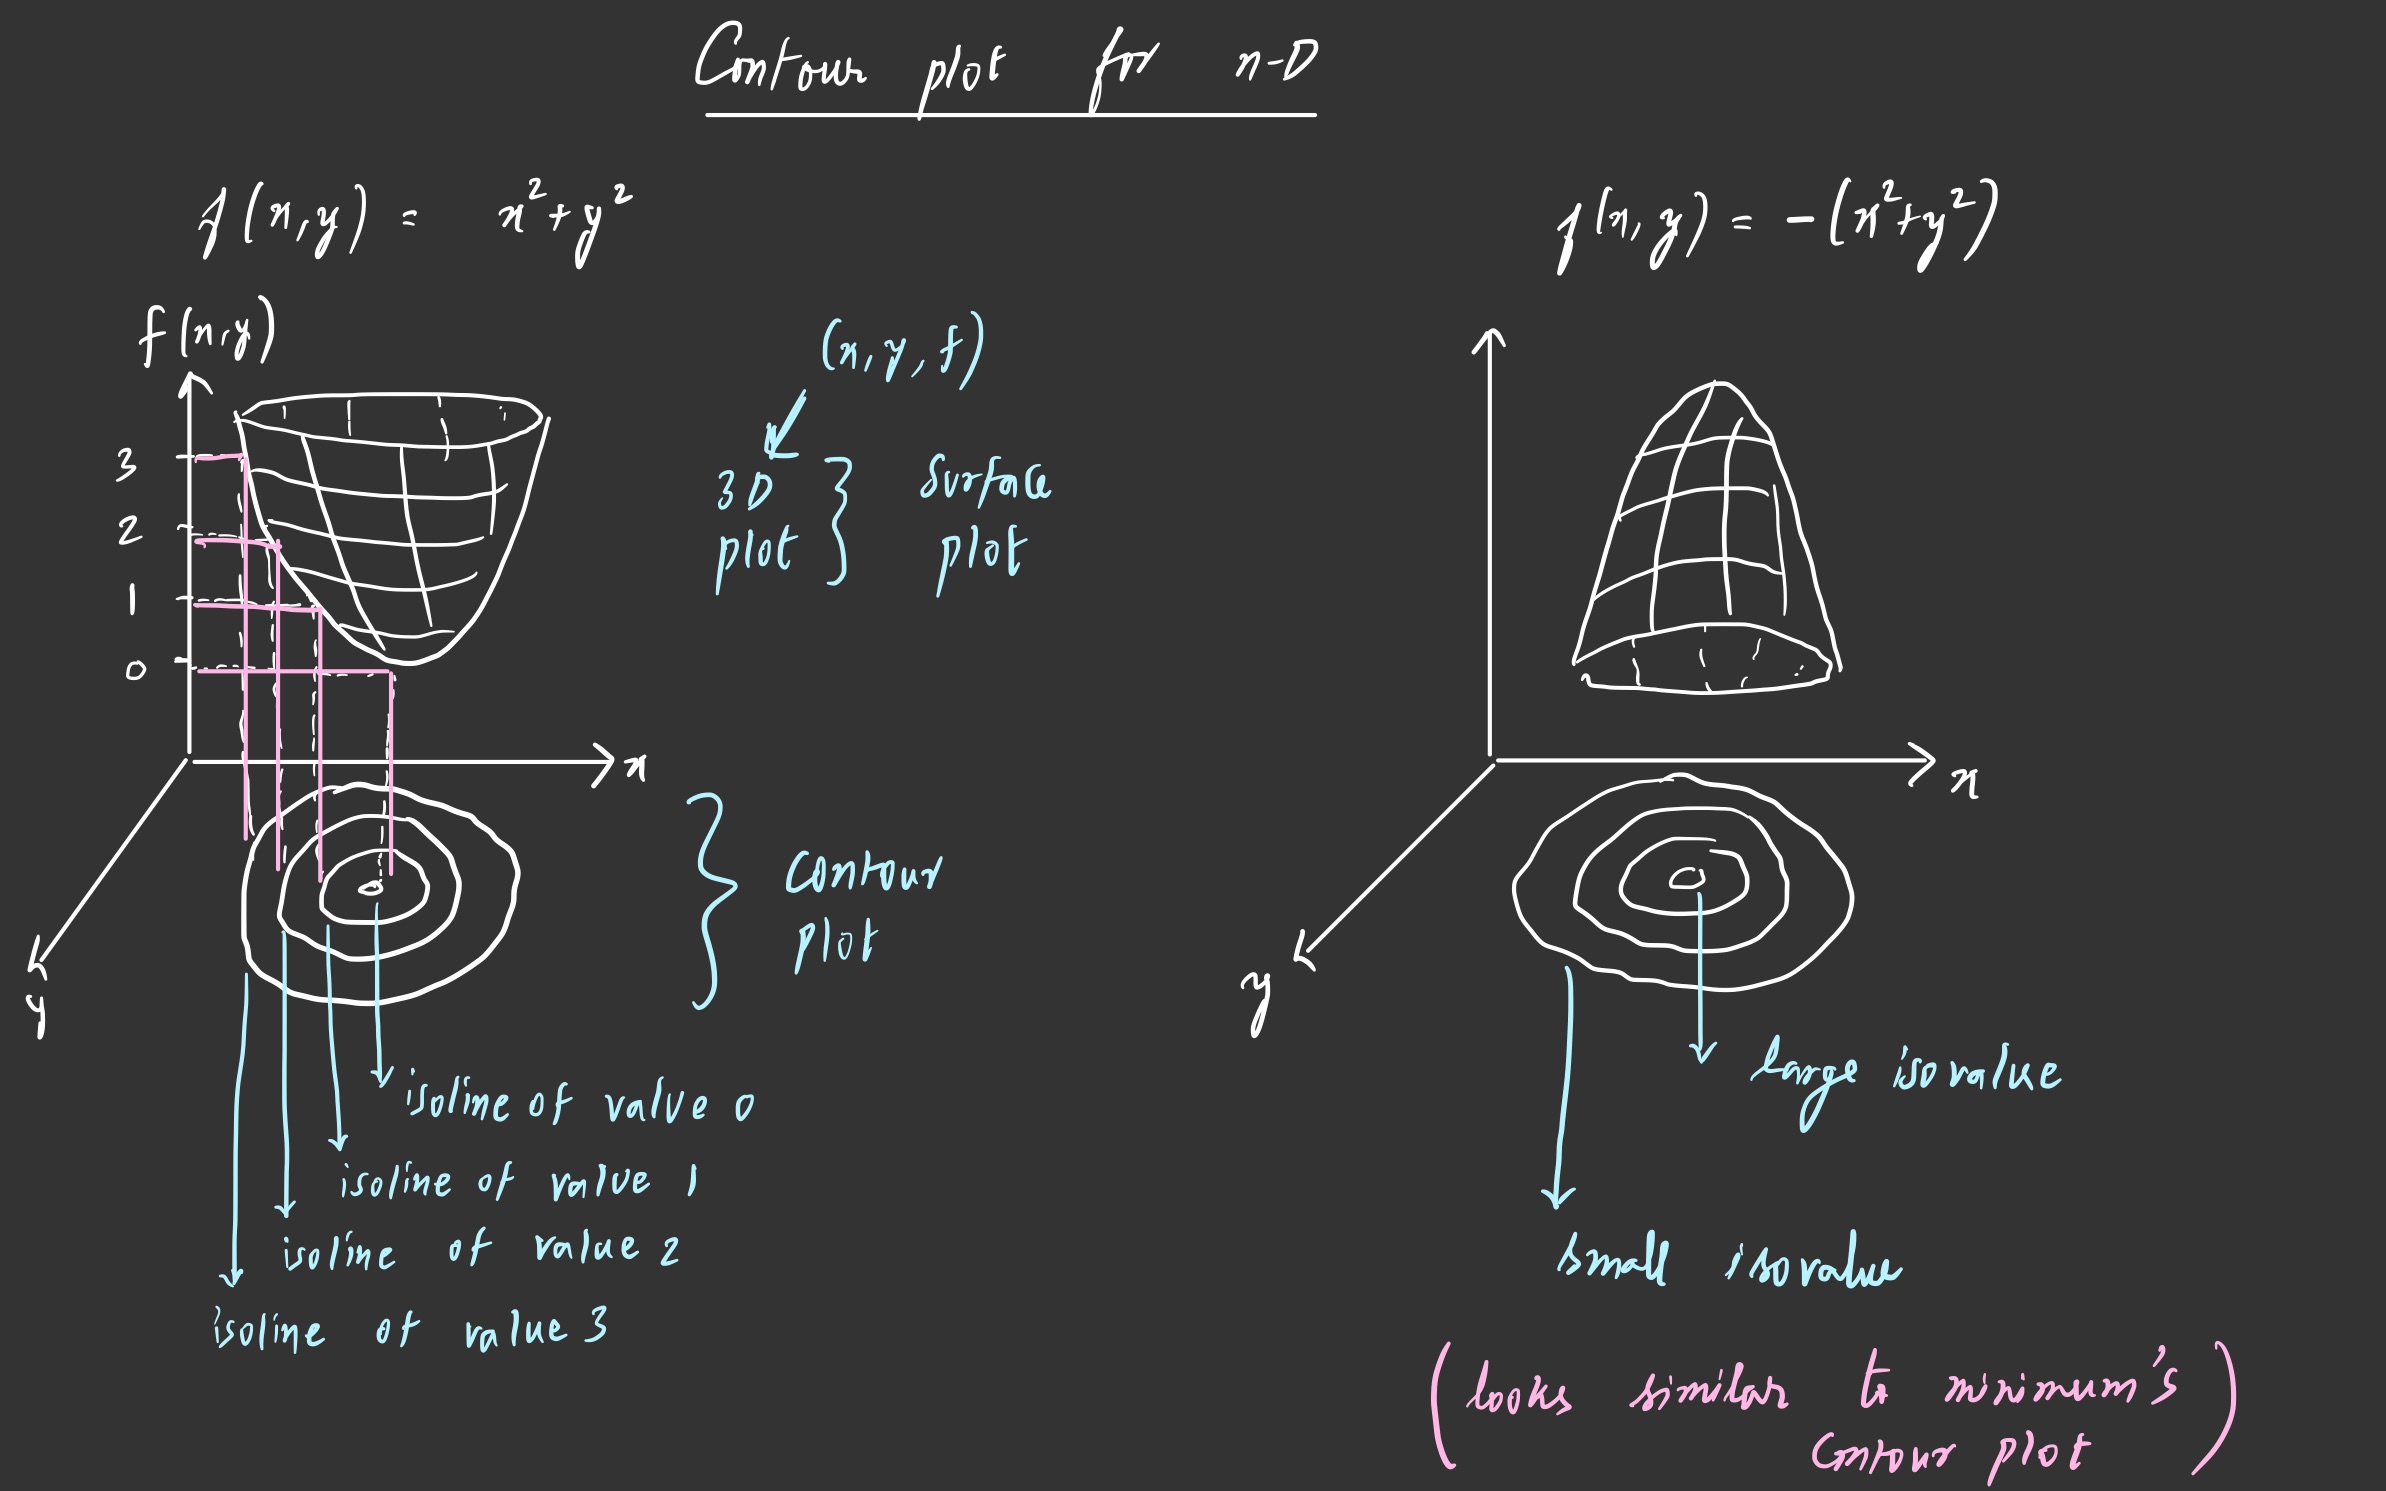 Contour plot for n-D
f(x,y) = x²+y²
f(x,y) = -(x²+y²)
f(x,y)
3
2
1
0
x
y
(x,y,f)
3D
plot
surface
plot
contour
plot
isoline of value 0
isoline of value 1
isoline of value 2
isoline of value 3
x
y
large isovalue
small isovalue
(looks similar to minimum's
contour plot)